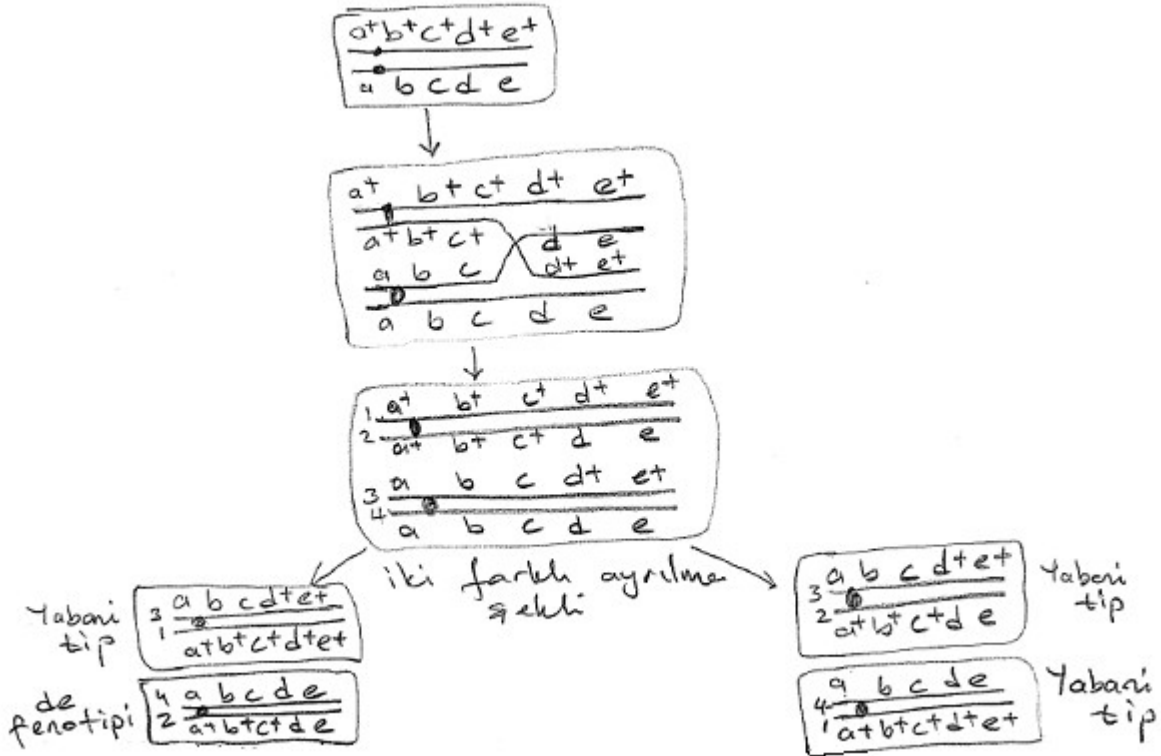 a+ b+ c+ d+ e+
a b c d e
a+ b+ c+ d+ e+
a+ b+ c+ d e
a b c d+ e+
a b c d e
1 a+ b+ c+ d+ e+
2 a+ b+ c+ d e
3 a b c d+ e+
4 a b c d e
iki farklı ayrılma
şekli
Yabani
tip
3 a b c d+ e+
1 a+ b+ c+ d+ e+
de
fenotipi
4 a b c d e
2 a+ b+ c+ d e
3 a b c d+ e+
2 a+ b+ c+ d e
Yabani
tip
4 a b c d e
1 a+ b+ c+ d+ e+
Yabani
tip